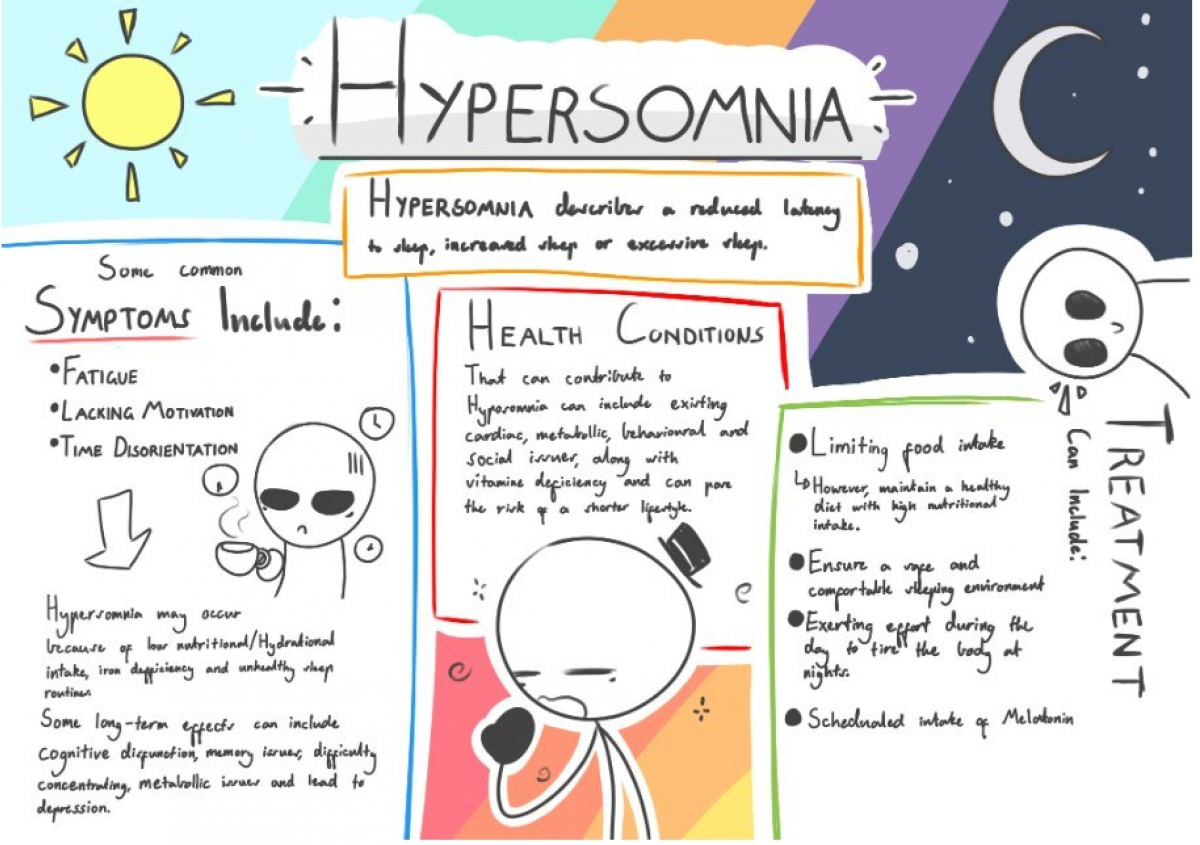 HYPERSOMNIA
HYPERSOMNIA describes a reduced latency
to sleep, increased sleep or excessive sleep.
Some common
SYMPTOMS Include:
•FATIGUE
•LACKING MOTIVATION
•TIME DISORIENTATION
Hypersomnia may occur
because of low nutritional/Hydrational
intake, iron defficiency and unhealthy sleep
routines.
Some long-term effects can include
cognitive disfunction, memory issues, difficulty
concentrating, metabollic issues and lead to
depression.
HEALTH CONDITIONS
That can contribute to
Hyporsomnia can include existing
cardiac, metabollic, behavioural and
social issues, along with
vitamine deficiency and can pore
the risk of a shorter lifestyle.
TREATMENT
Can Include:
•Limiting food intake
↳However, maintain a healthy
diet with high nutritional
intake.
•Ensure a and
comfortable sleeping environment
•Exerting effort during the
day to tire the body at
nights.
•Scheduled intake of Melatonin